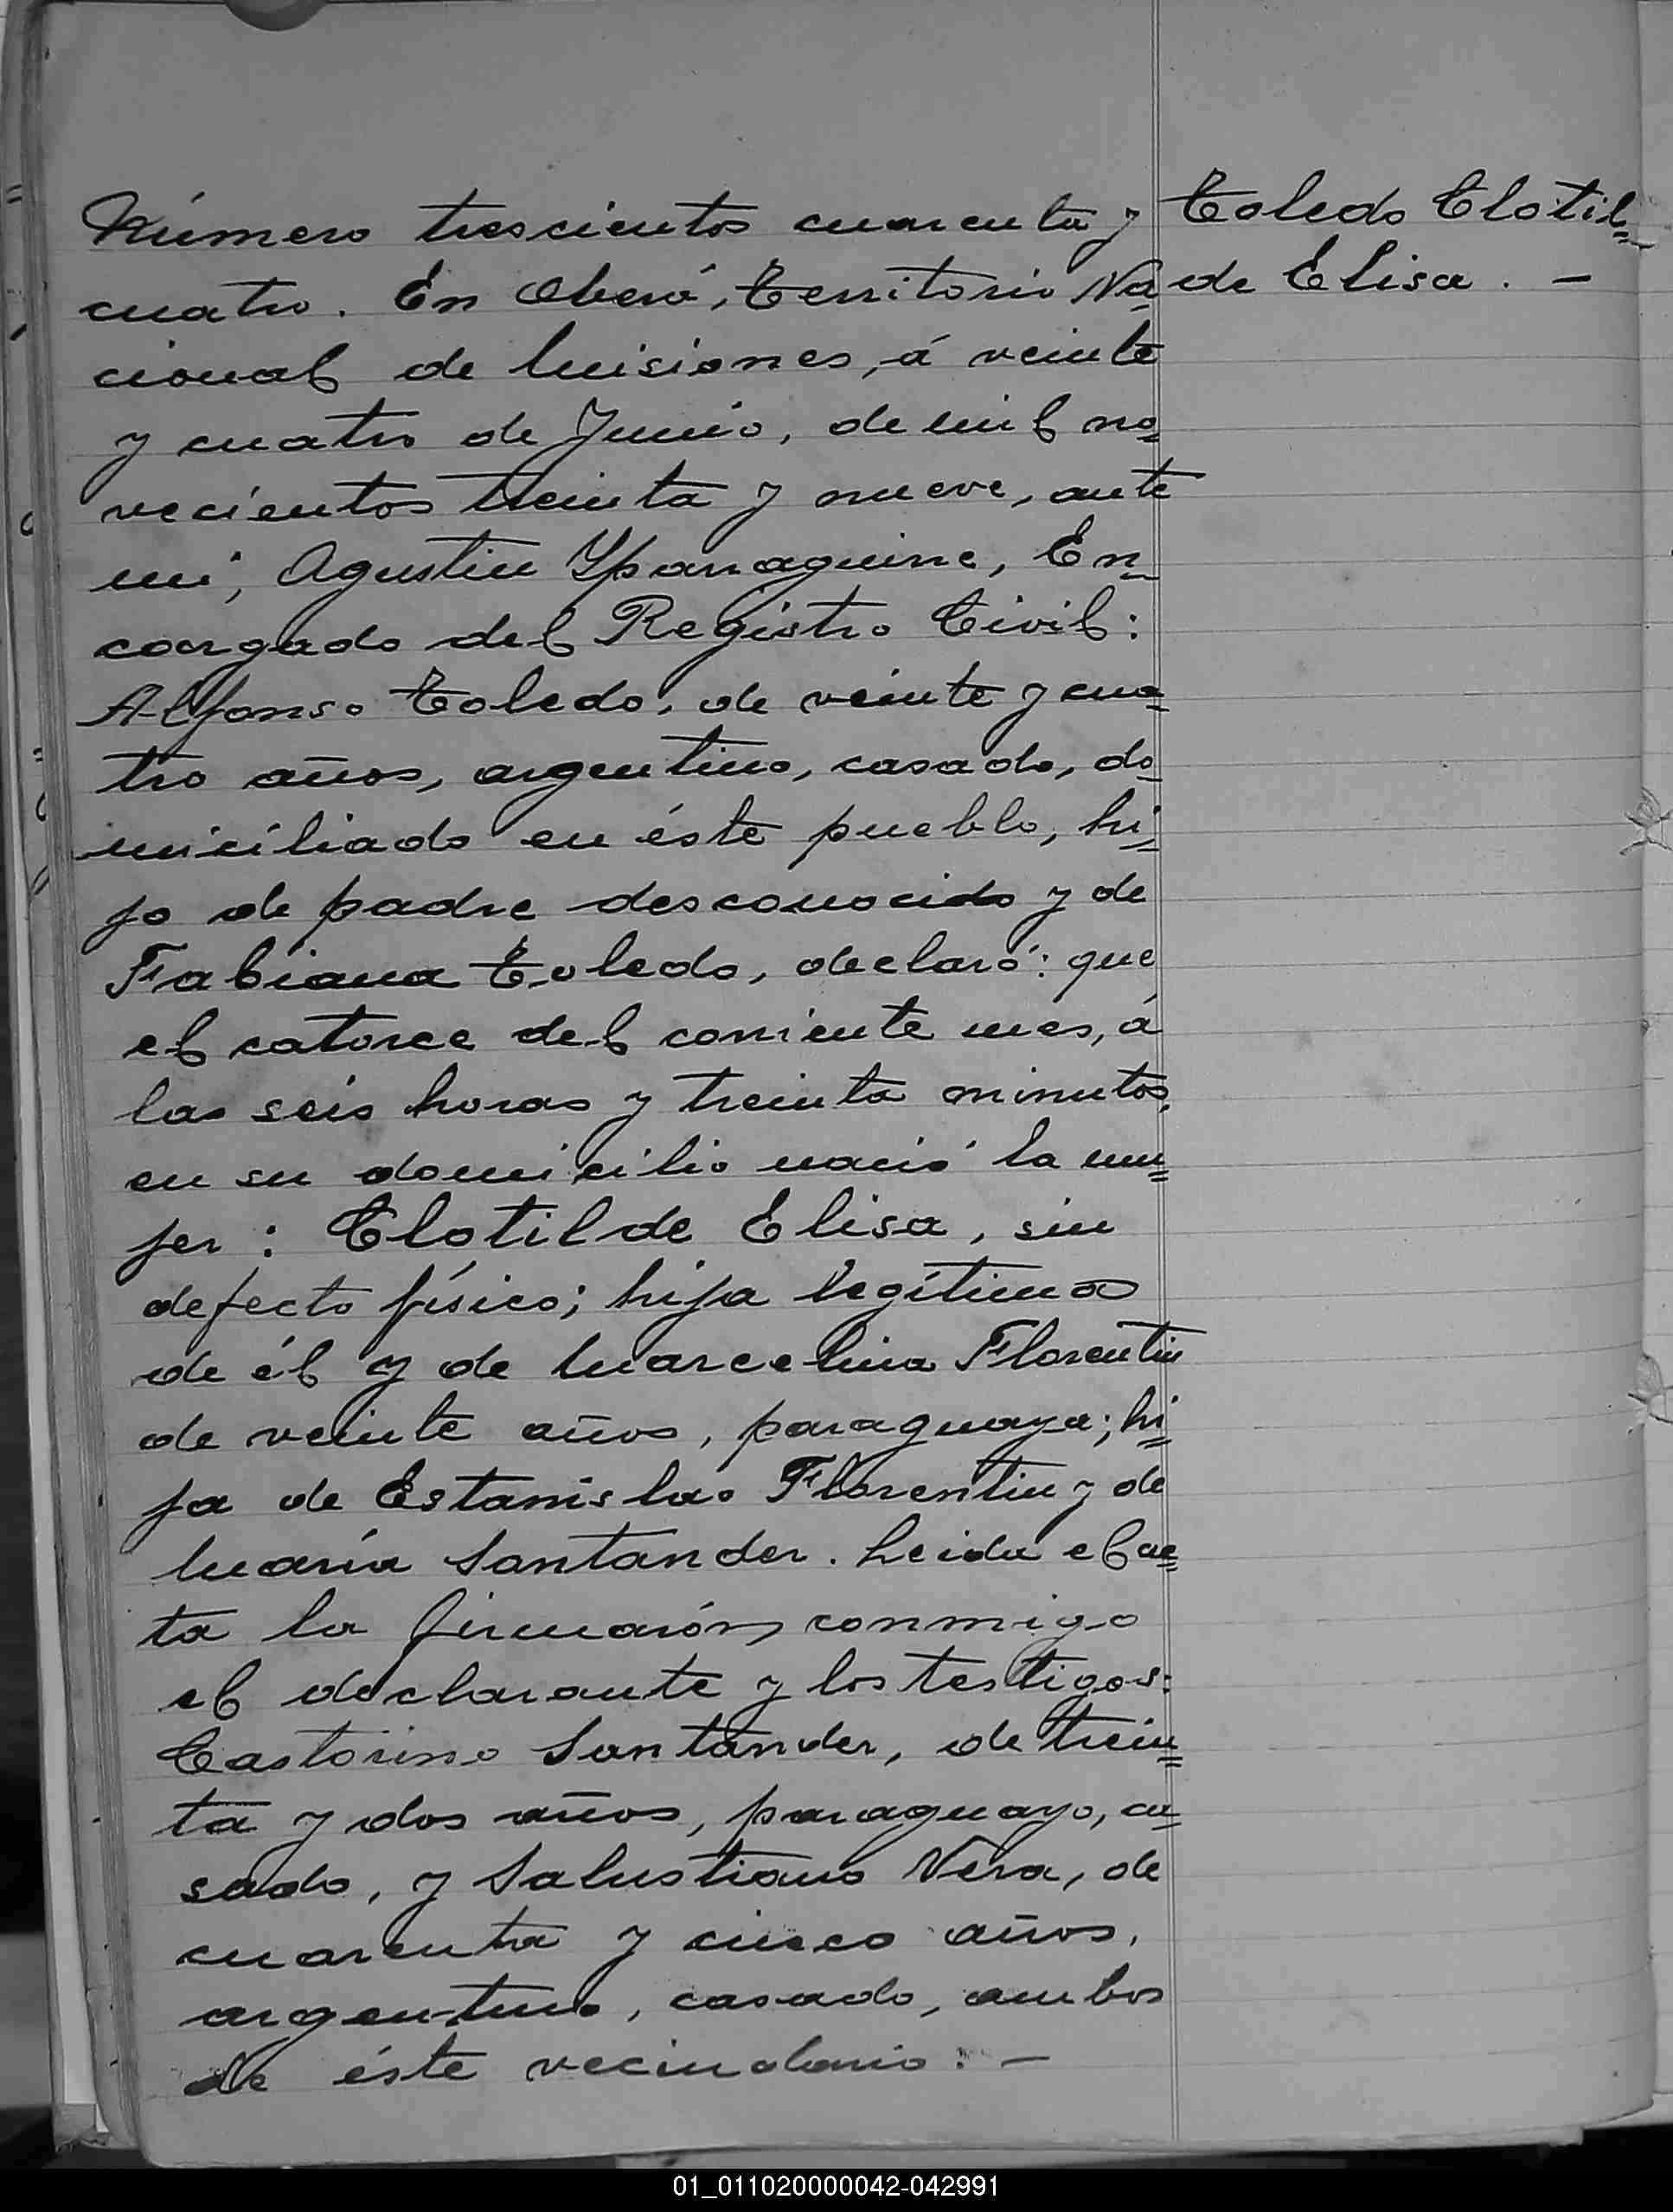 Número trescientos cuarenta y
cuatro. En Oberá, Territorio Na=
cional de Misiones, á veinte
y cuatro de Junio, de mil no=
vecientos treinta y nueve, ante
mi, Agustin Yparraguirre, En=
cargado del Registro Civil:
Alfonso Toledo, de veinte y cua=
tro años, argentino, casado, do=
miciliado en éste pueblo, hi=
jo de padre desconocido y de
Fabiana Toledo, declaró: que
el catorce del corriente mes, á
las seis horas y treinta minutos,
en su domicilio nació la mu=
jer: Clotilde Elisa, sin
defecto físico; hija legítima
de él y de Marcelina Florentin
de veinte años, paraguaya; hi=
ja de Estanislao Florentin y de
María Santander. Leida el ac=
ta la firmarón conmigo
el declarante y los testigos:
Castorino Santander, de trein=
ta y dos años, paraguayo, ca=
sado, y Salustiano Vera, de
cuarenta y cinco años,
argentino, casado, ambos
de éste vecindario: -
Toledo Clotil=
de Elisa. -
01_011020000042-042991